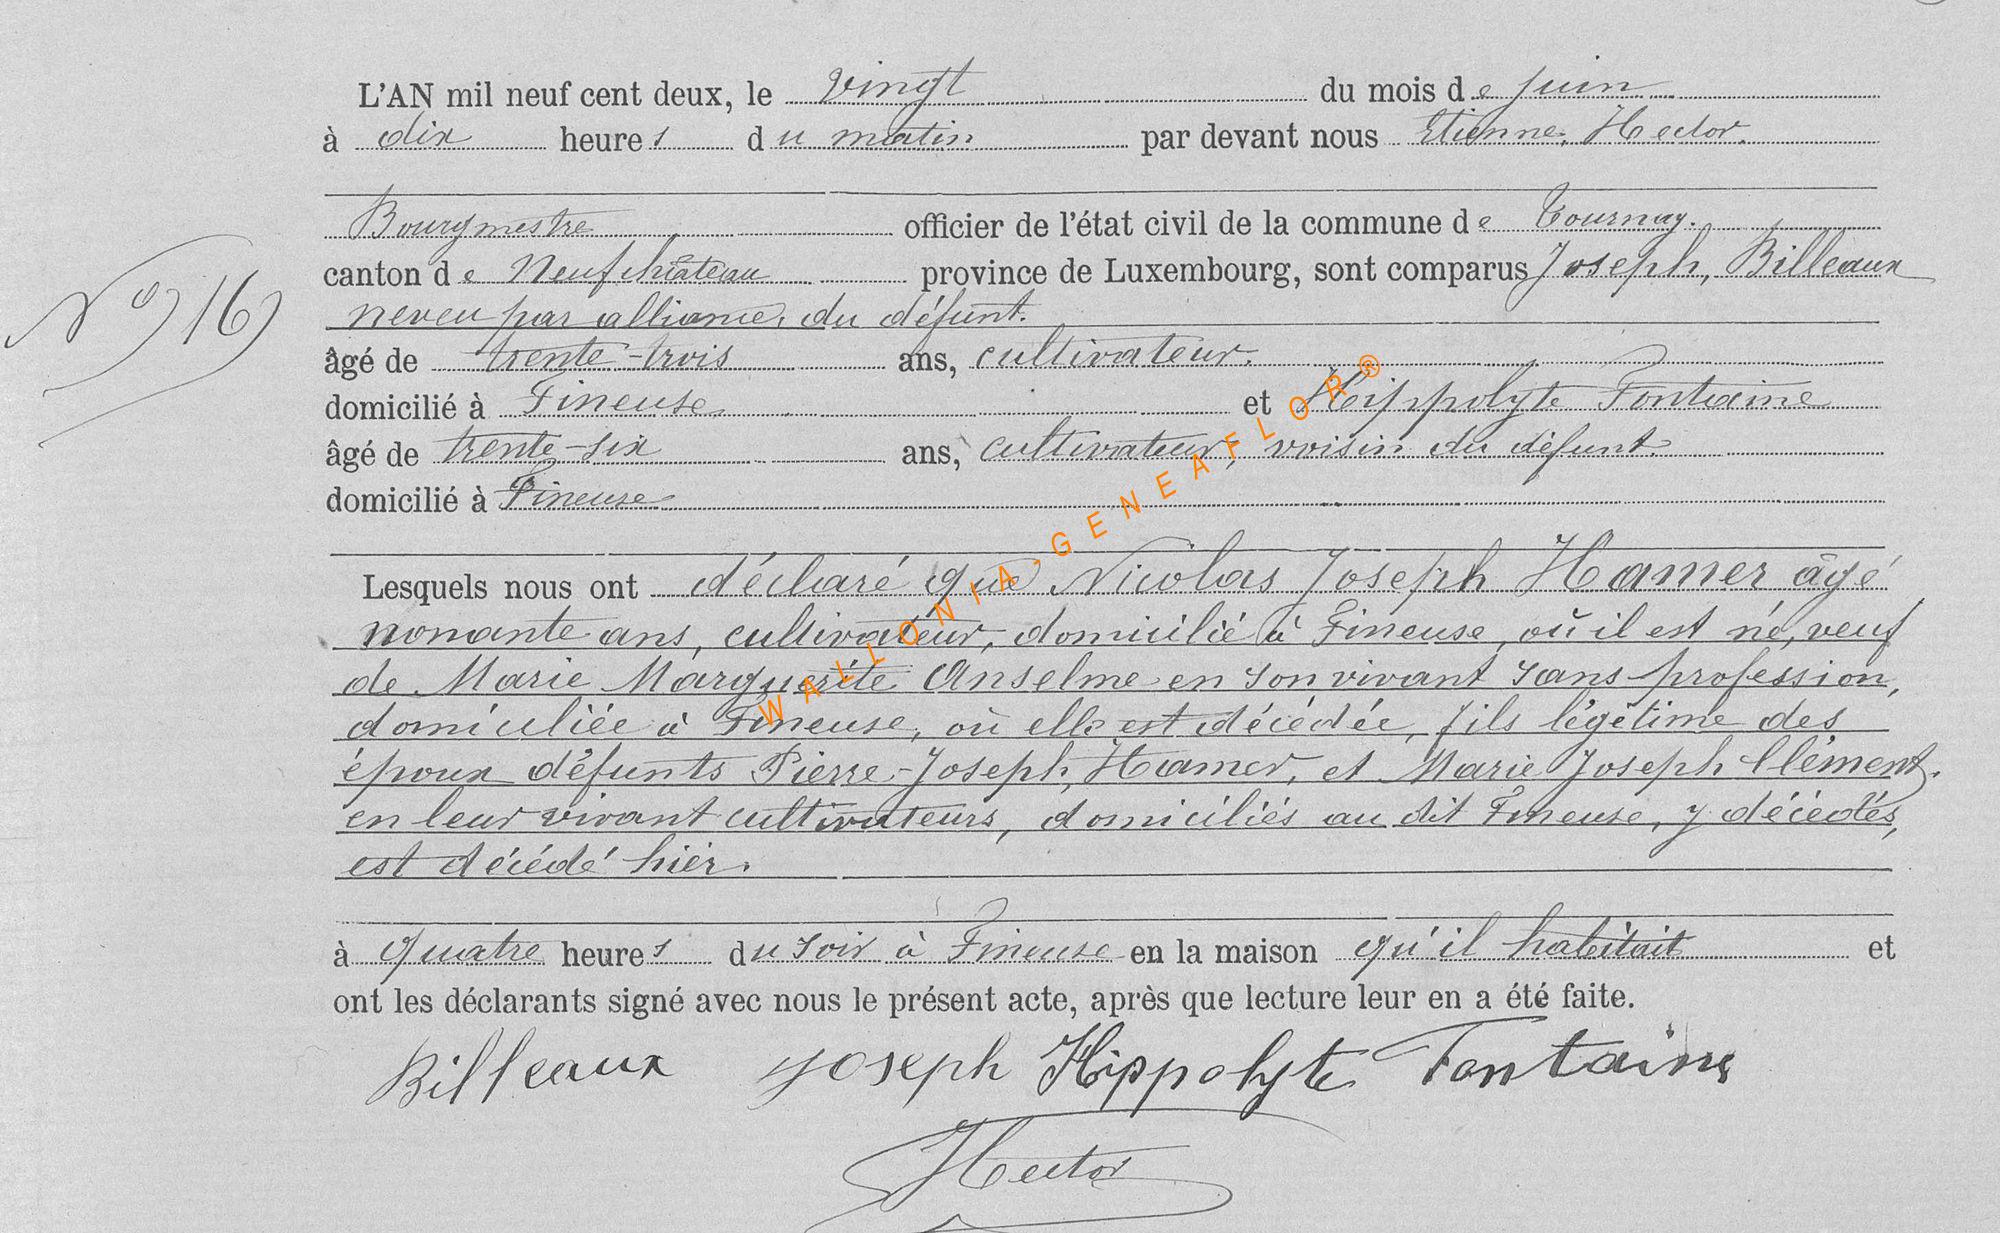 L'AN mil neuf cent deux, le vingt du mois de juin
à dix heures du matin par devant nous Etienne, Hector.
Bourgmestre officier de l'état civil de la commune de Tournay.
canton de Neufchâteau province de Luxembourg, sont comparus Joseph, Billeaux
neveu par alliance, du défunt.
âgé de trente-trois ans, cultivateur.
domicilié à Fineuse, et Hippolyte Fontaine
âgé de trente-six ans, cultivateur, voisin du défunt
domicilié à Fineuse
N° 16
Lesquels nous ont déclaré que Nicolas Joseph Hamer âgé
nonante ans, cultivateur, domicilié à Fineuse, où il est né, veuf
de Marie Marguerite Anselme en son vivant sans profession,
domiciliée à Fineuse, où elle est décédée, fils légitime des
époux défunts Pierre-Joseph, Hamer, et Marie Joseph Clément,
en leur vivant cultivateurs, domiciliés au dit Fineuse, y décédés,
est décédé hier.
à quatre heures du soir à Fineuse en la maison qu'il habitait et
ont les déclarants signé avec nous le présent acte, après que lecture leur en a été faite.
Billeaux Joseph Hippolyte Fontaine
Hector
WALLONIA-GENEAFLOR®